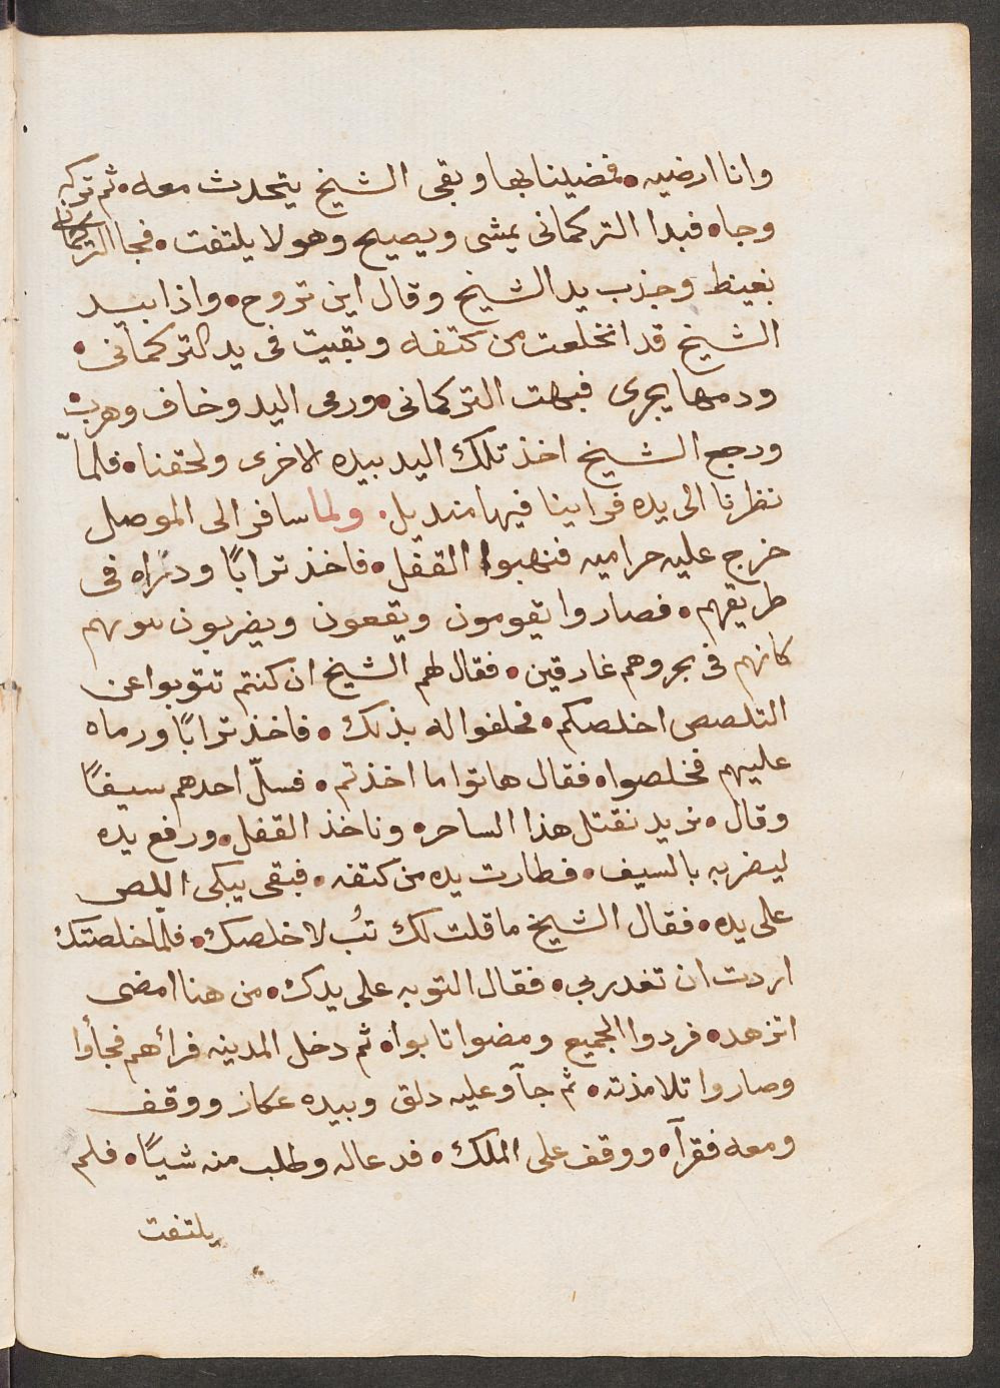 وانا ارضيه • فمضينا بها وبقى الشيخ يتحدث معه • ثم تركه
وجاه فبدا التركمانى يمشى ويصيح وهو لا يلتفت • فجا التركمانى
بغيظ وجذب يد الشيخ وقال اين تروح • واذا بيد
الشيخ قد انخلعت من كتفه وبقيت فى يد التركمانى •
ودمها يجرى فبهت التركمانى • ورمى اليد وخاف وهرب •
ورجع الشيخ اخذ تلك اليد بيده الاخرى ولحقنا • فلمّا
نظرنا الى يده فراينا فيها منديل • ولما سافر الى الموصل
خرج عليه حراميه فنهبوا القفل • فاخذ ترابًا وذراه فى
طريقهم • فصاروا يقومون ويقعون ويضربون
كانهم فى بحر وهم غارقين • فقال لهم الشيخ ان كنتم تتوبوا عن
التلصص اخلصكم • فحلفوا له بذلك • فاخذ ترابًا ورماه
عليهم فخلصوا • فقال هاتوا ما اخذتم • فسلّ احدهم سيفًا
وقال • نريد نقتل هذا الساحره وناخذ القفل • ورفع يده
ليضربه بالسيف • فطارت يده من كتفه • فبقى يبكى اللص
على يده • فقال الشيخ ما قلت لك تُب لاخلصك • فلمّا خلصتك
اردت ان تغدر بى • فقال التوبه على يدك • من هنا امضى
اتزهد • فردوا الجميع ومضوا تابوا • ثم دخل المدينه فرائهم فجأوا
وصاروا تلامذته • ثم جآ وعليه دلق وبيده عكاز ووقف
ومعه فقرآ • ووقف على الملك • فدعا له وطلب منه شيًا • فلم
يلتفت